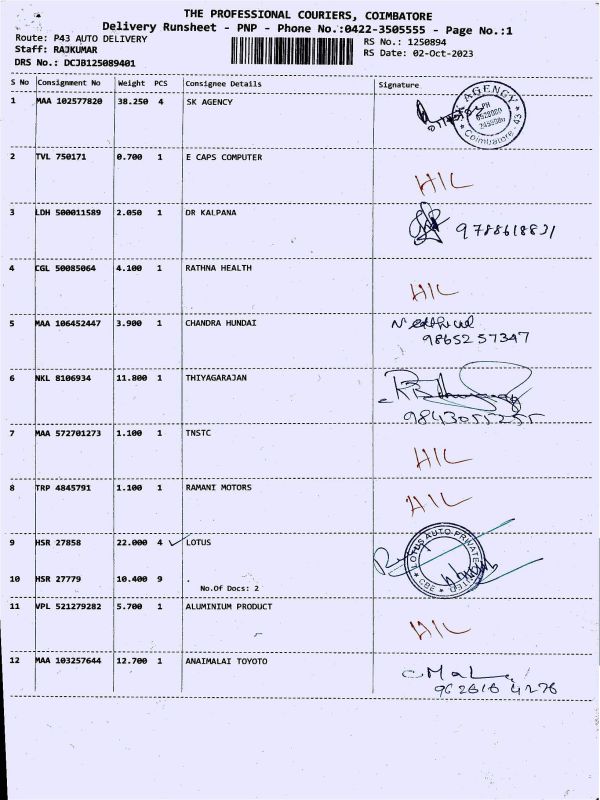 THE PROFESSIONAL COURIERS, COIMBATORE
Delivery Runsheet - PNP - Phone No.:0422-3505555 - Page No.:1
Route: P43 AUTO DELIVERY
RS No.: 1250894
Staff: RAJKUMAR
RS Date: 02-Oct-2023
DRS No.: DCJB125089401
S No Consignment No Weight PCS Consignee Details Signature
1 MAA 102577820 38.250 4 SK AGENCY
AGENCY
PH
Coimbatore - 43
2 TVL 750171 0.700 1 E CAPS COMPUTER
H/L
3 LDH 500011589 2.050 1 DR KALPANA
9788618831
4 CGL 50085064 4.100 1 RATHNA HEALTH
H/L
5 MAA 106452447 3.900 1 CHANDRA HUNDAI
9865257347
6 NKL 8106934 11.800 1 THIYAGARAJAN
9843055255
7 MAA 572701273 1.100 1 TNSTC
H/L
8 TRP 4845791 1.100 1 RAMANI MOTORS
H/L
9 HSR 27858 22.000 4 LOTUS
LOTUS AUTO PRIVATE LIMITED
CBE
10 HSR 27779 10.400 9
No.Of Docs: 2
11 VPL 521279282 5.700 1 ALUMINIUM PRODUCT
H/L
12 MAA 103257644 12.700 1 ANAIMALAI TOYOTO